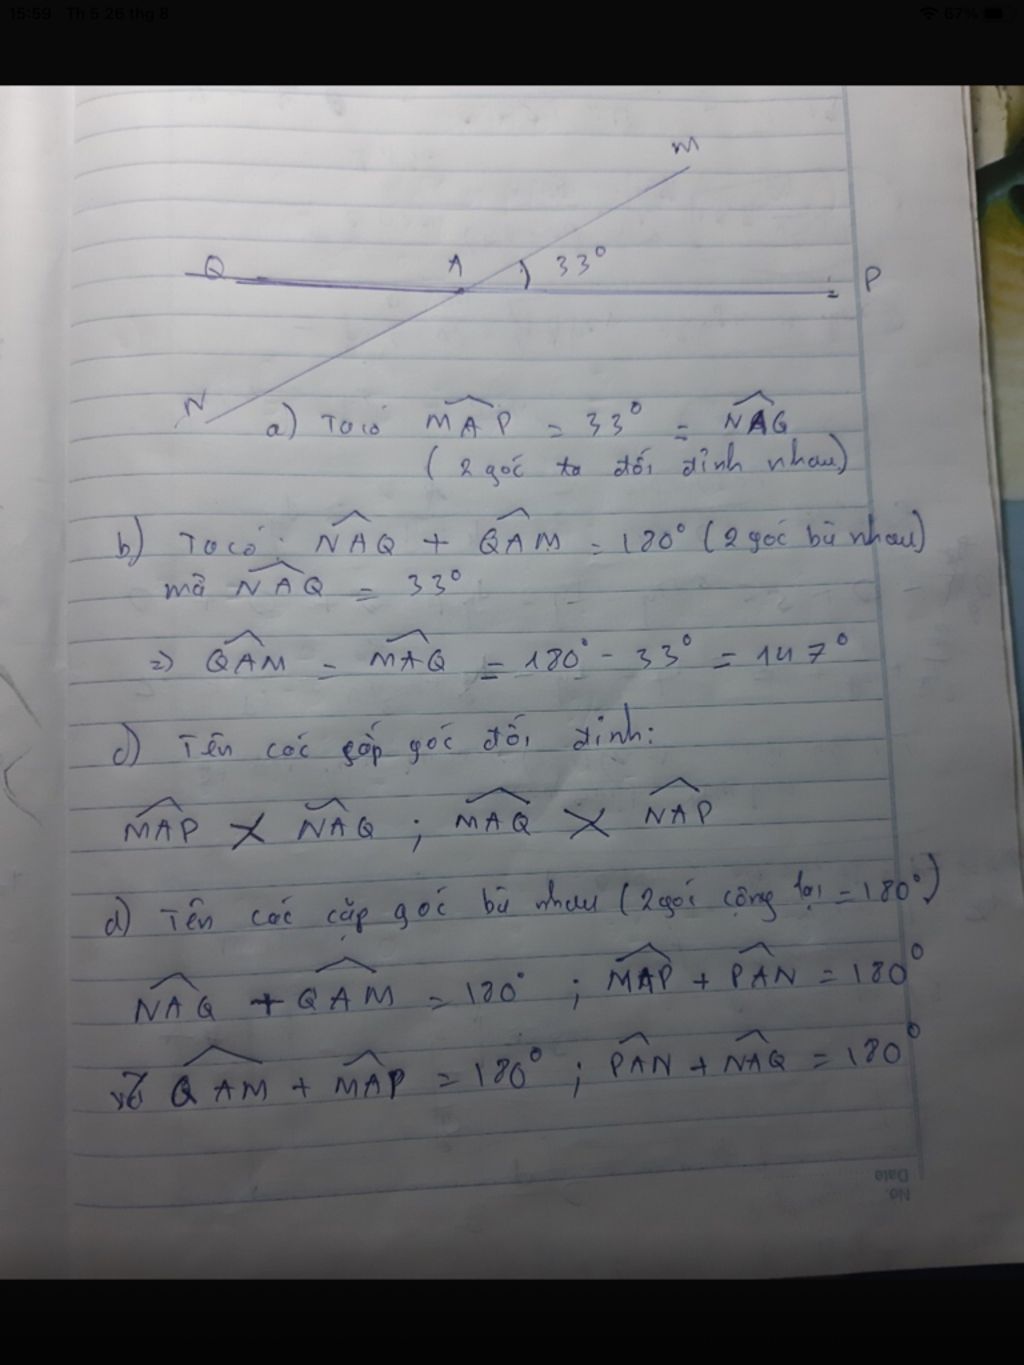 15:59 Th 5 26 thg 8
67%
M
Q
A
33°
P
N
a) Ta có MAP = 33° = NAQ
(2 góc to đối đỉnh nhau)
b) Ta có: NAQ + QAM = 180° (2 góc bù nhau)
mà NAQ = 33°
=> QAM = MAQ = 180° - 33° = 147°
c) Tên các cặp góc đối đỉnh:
MAP × NAQ ; MAQ × NAP
d) Tên các cặp góc bù nhau (2 góc cộng lại = 180°)
NAQ + QAM = 180° ; MAP + PAN = 180°
và QAM + MAP = 180° ; PAN + NAQ = 180°
Date
No.